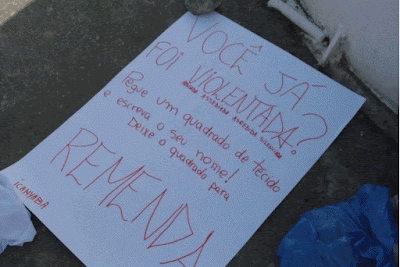 VOCÊ JÁ
FOI VIOLENTADA?
Pegue um quadrado de tecido
e escreva o seu nome!
Deixe o quadrado para
REMENDA